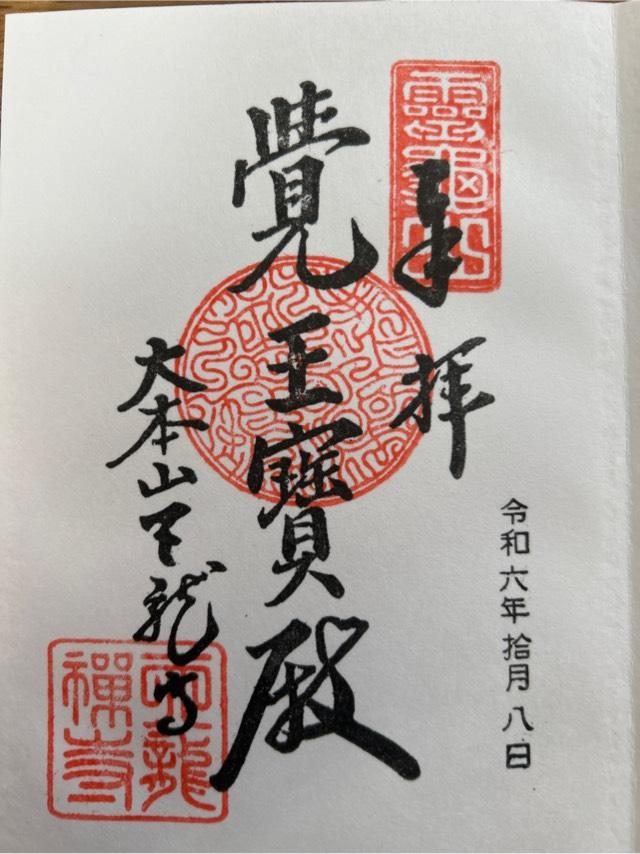 奉拝
令和六年拾月八日
覺王寶殿
大本山天龍寺
靈龜山
天龍禪寺